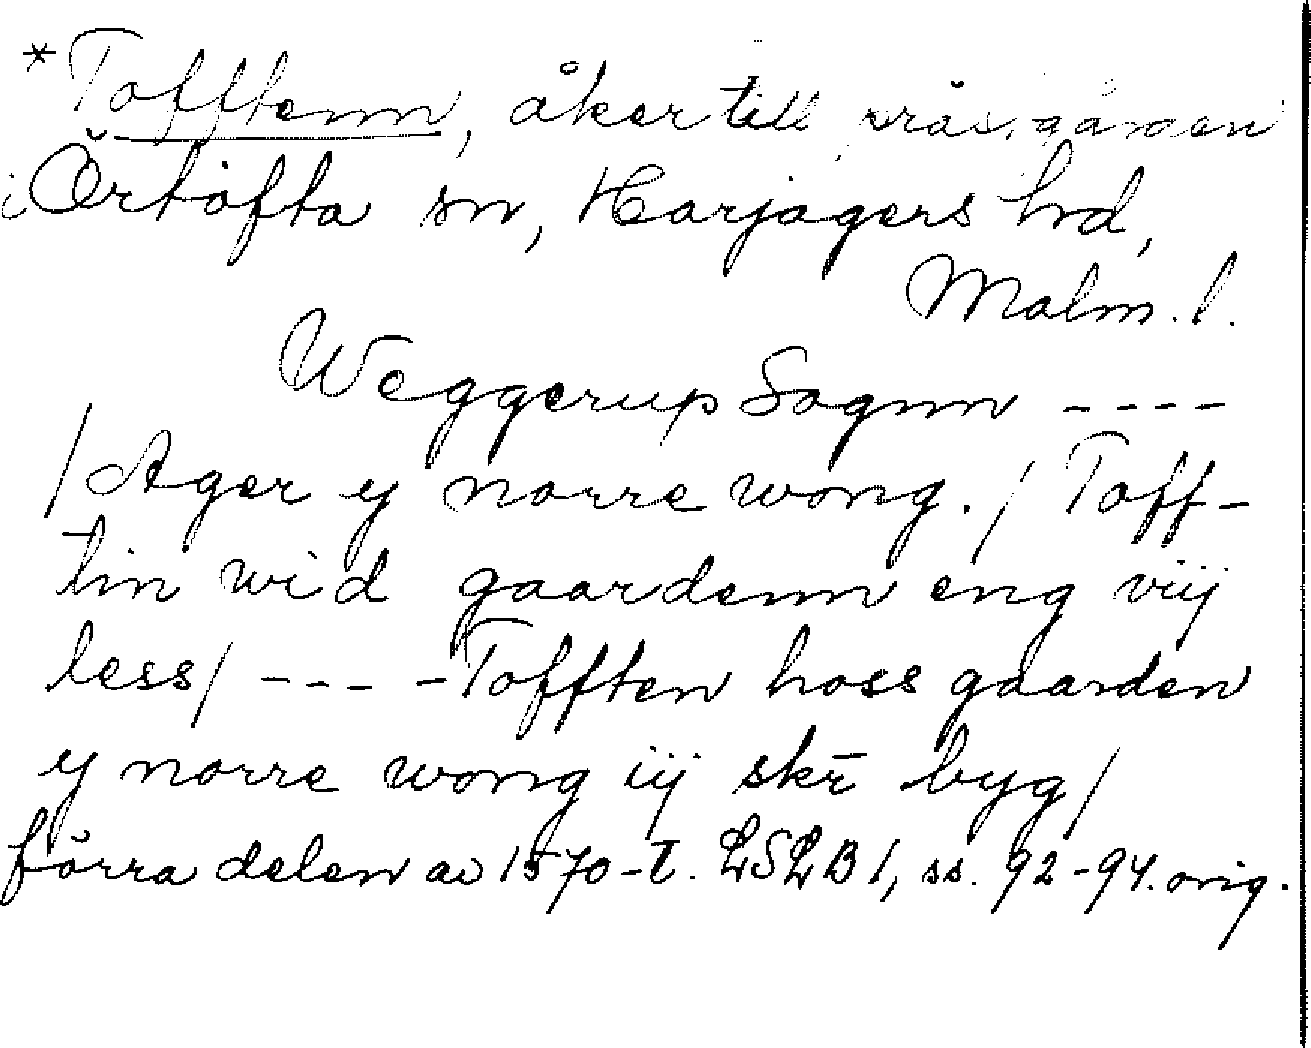 *Tofftenn, åker till prästgården
i Örtofta sn, Harjagers hd,
Malm. l.
Weggerup Sognn ----
/Ager y norre wong./ Toff-
tin wid gaardenn eng viij
less/ ---- Tofften hoss gaarden
y norre wong iij skr̄ byg/
förra delen av 1570-t. LSLB 1, ss. 92-94. orig.